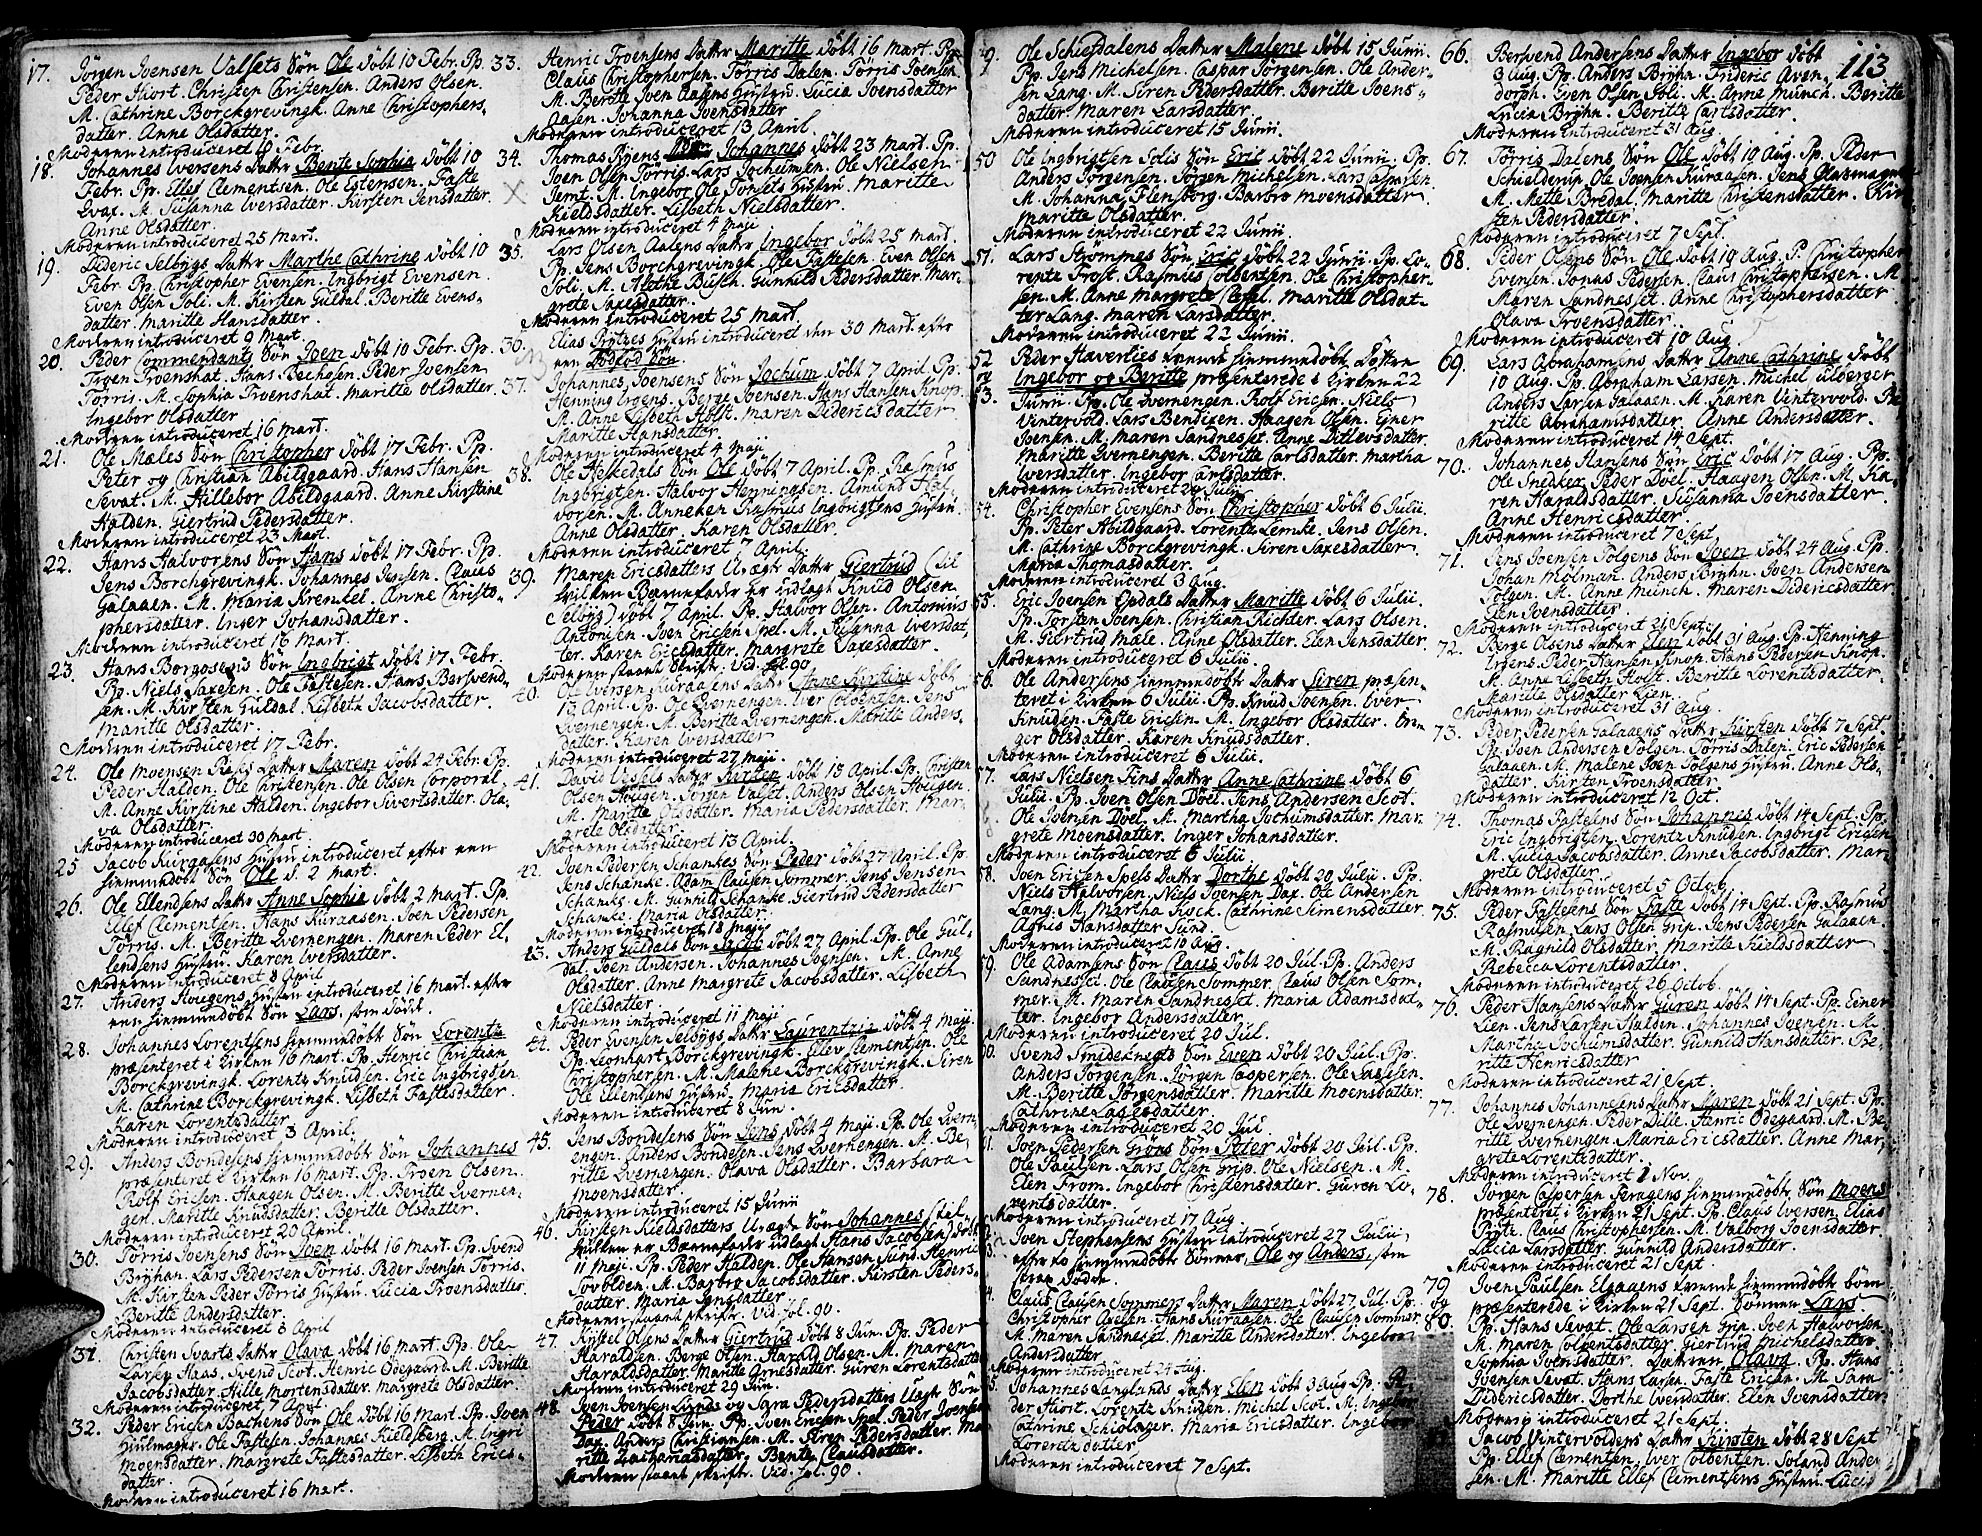 17. Jörgen Joensen Valsets Sön Ole döbt 10 Febr. Pp.
Peder Hiort. Christen Christensen. Anders Olsen.
M. Cathrine Borckgrevingk. Anne Christophers-
datter. Anne Olsdatter.
Moderen introduceret 10 Febr.
18. Johannes Iversens Datter Bente Sophia döbt 10
Febr. Pp. Ellef Clementsen. Ole Estensen. Faste
Evax. M. Susanna Iversdatter. Kirsten Jensdatter.
Anne Olsdatter.
Moderen introduceret 25 Mart.
19. Dideric Selbygs Datter Marthe Cathrine döbt 10
Febr. Pp. Christopher Evensen. Ingbrigt Evensen.
Even Olsen Soli. M. Kirsten Guldal. Beritte Evens-
datter. Maritte Hansdatter.
Moderen introduceret 9 Mart.
20. Peder Commendants Sön Joen döbt 10 Febr. Pp.
Troen Troenshat. Hans Bechosen. Peder Joensen
Törris. M. Sophia Troenshat. Maritte Olsdatter.
Ingebor Olsdatter
Moderen introduceret 16 Mart.
21. Ole Mæles Sön Christopher döbt 17 Febr. Pp.
Peter og Christian Abildgaard. Hans Hansen
Sevat. M. Hillebor Abildgaard. Anne Kirstine
Halden. Giertrud Pedersdatter.
Moderen introduceret 23 Mart.
22. Hans Halvorsens Sön Hans döbt 17 Febr. Pp.
Jens Borchgrevingk. Johannes Jensen. Claus
Galaaen. M. Maria Krenkel. Anne Christo-
phersdatter. Inger Johansdatter.
Moderen introduceret 16 Mart.
23. Hans Borgosens Sön Ingbrigt döbt 17 Febr.
Pp. Niels Saxesen. Ole Fastesen. Hans Bersvend-
sen. M. Kirsten Guldal. Lisbeth Jacobsdatter.
Maritte Olsdatter.
Moderen introduceret 17 Febr.
24. Ole Moensen Rases Datter Maren döbt 24 Febr. Pp.
Peder Halden. Ole Christensen. Ole Olsen Corporal.
M. Anne Kirstine Halden. Ingebor Sivertsdatter. Ola-
va Olsdatter.
Moderen introduceret 30 Mart.
25 Jacob Kuraasens Hustru introduceret efter een
hiemmedöbt Sön Ole d. 2 Mart.
26. Ole Ellendsens Datter Anne Sophia döbt 2 Mart. Pp.
Ellef Clementsen. Hans Kuraasen. Joen Pedersen
Törris. M. Beritte Qvernengen. Maren Peder El-
lendsens Hustru. Karen Iversdatter.
Moderen introduceret 8 April
27. Anders Hougens Hustru introduceret 16 Mart. efter
een hiemmedöbt Sön Lars, som döde.
28. Johannes Lorentsens hiemmedöbt Sön Lorentz
præsenteret i Kirken 16 Mart. Pp. Henric Christian
Borckgrevingk. Lorentz Knudsen. Eric Ingbrigtsen
M. Cathrine Borckgrevingk. Lisbeth Fastesdatter.
Karen Lorentsdatter
Moderen introduceret 3 April.
29. Anders Bondesens hiemmedöbt Sön Johannes
præsenteret i Kirken 16 Mart. Pp. Troen Olsen.
Rolf Ericsen. Haagen Olsen. M. Beritte Qvernen-
gen. Maritte Knudsdatter. Beritte Olsdatter.
Moderen introduceret 20 April.
30. Törris Joensens Sön Joen döbt 16 Mart. Pp. Svend
Bryhan. Lars Pedersen Törris. Peder Joensen Törris.
M. Kirsten Peder Törris Hustru. Lucia Troensdatter
Beritte Andersdatter.
Moderen introduceret 6 April
31. Christen Svarts Datter Olava döbt 16 Mart. Pp. Ole
Larsen Haas. Svend Scot. Henric Ödegaard. M. Beritte
Jacobsdatter. Hille Mortensdatter. Margrete Olsdatter.
Moderen introduceret 7 April
32. Peder Ericsen Bachens Sön Ole döbt 16 Mart. Pp. Joen
Hiulmager. Ole Fastesen. Johannes Kieldsberg. M. Ingri
Moensdatter. Margrete Fastesdatter. Lisbeth Erics-
datter.
Moderen introduceret 16 Mart.
33. Henric Troensens Datter Maritte döbt 16 Mart. Pp.
Claus Christophersen. Törris Dalen. Törris Joensen
M. Beritte Joen Aasens Hustru. Lucia Joensdatter
Aasen. Johanna Joensdatter
Moderen introduceret 13 April.
34. Thomas Ryens Sön Johannes döbt 23 Mart. Pp.
Joen Olsen Törris. Lars Jochumsen. Ole Nielsen
Jemt. M. Ingebor Ole Tonsets Hustru. Maritte
Kieldsdatter. Lisbeth Nielsdatter.
Moderen introduceret 4 Maji
35. Lars Olsen Aalens Datter Ingebor döbt 25 Mart.
Pp. Jens Borchgrevingk. Ole Fastesen. Even Olsen
Soli. M. Alethe Busch. Gunnild Pedersdatter. Mar-
grete Saxesdatter.
Moderen introduceret 25 Mart.
36. Elias Prytzes Hustru introduceret den 30 Mart. efter
een dödfød Sön.
37. Johannes Joensens Sön Jochum döbt 7 April. Pp.
Henning Irgens. Berge Joensen. Hans Hansen Knop.
M. Anne Lisbeth Holst. Maren Didericsdatter
Maritte Hansdatter
Moderen introduceret 4 Maji
38. Ole Heskedals Sön Ole döbt 7 April. Pp. Rasmus
Ingbrigtsen. Halvor Henningsen. Amund Hal-
vorsen. M. Anneken Rasmus Ingbrigtsens Hustru
Anne Olsdatter. Karen Olsdatter.
Moderen introduceret 7 April.
39. Maren Ericsdatters Uægte Datter Giertrud (til
hvilken Barnefader er udlagt Knud Olsen
Selbyg) döbt 7 April. Pp. Halvor Olsen. Antonius
Antonisen. Joen Ericsen Spel. M. Susanna Iversdat-
ter. Karen Ericsdatter. Margrete Saxesdatter.
Moderen staaet skrifte. Vid. fol. 90
40. Ole Iversen Kuraasens Datter Anne Kirstine döbt
13 April. Pp. Ole Qvernengen. Iver Colbensen. Jens
Qvernengen. M. Beritte Qvernengen. Maritte Anders-
datter. Karen Iversdatter
Moderen introduceret 27 Maji.
41. David Vessels Datter Kirsten döbt 15 April. Pp. Christen
Olsen Hougen. Jörgen Valset. Anders Olsen Hougen.
M. Maritte Olsdatter. Maria Pedersdatter. Mar-
grete Olsdatter.
Moderen introduceret 13 April.
42. Joen Pedersen Schankes Sön Peder döbt 27 April. Pp.
Jens Schanke. Adam Clausen Sommer. Jens Jensen
Schanke. M. Gunnild Schanke. Giertrud Pedersdatter
Schanke. Maria Olsdatter.
Moderen introduceret 18 Maji
43. Anders Guldals Sön Jacob döbt 27 April. Pp. Ole Gul-
dal. Joen Andersen. Johannes Joensen. M. Anne
Olsdatter. Anne Margrete Jacobsdatter. Lisbeth
Nielsdatter.
Moderen introduceret 11 Maji
44. Peder Evensen Selbygs Datter Laurentzia döbt 4 Maji.
Pp. Leonhart Borckgrevingk. Elev Clemetsen. Ole
Christophersen. M. Malene Borckgrevingk. Siren
Ole Ellensens Hustru. Maria Ericsdatter
Moderen introduceret 8 Jun.
45. Jens Bondesens Sön Jens döbt 4 Maji. Pp. Ole Qvern-
engen. Anders Bondesen. Jens Qvernengen. M. Be-
ritte Qvernengen. Olava Olsdatter. Barbara
Moensdatter.
Moderen introduceret 15 Junii
46. Kirsten Kieldsdatters Uægte Sön Johannes (til
hvilken er Barnefader udlagt Hans Jacobsen) döbt
11 Maji. Pp. Peder Halden. Ole Hansen Sund. Henric
Sovolden. M. Barbro Jacobsdatter. Kirsten Peders-
datter. Maria Jensdatter
Moderen staaet skrifte. Vid. fol. 90.
47. Kystel Olsens Datter Giertrud döbt 8 Jun. Pp. Peder
Haraldsen. Berge Olsen. Harald Olsen. M. Maren
Haraldsdatter. Maritte Örnesdatter. Guren Lorentsdatter
Moderen introduceret 29 Jun.
48. Joen Joensen Lunds og Sara Pedersdatters Uægte Sön
Peder döbt 8 Jun. Pp. Joen Ericsen Spel. Peder Joensen
Dax. Anders Christiansen. M. Siren Pedersdatter. Ma-
ritte Zachariasdatter. Bente Clausdatter.
Moderen staaet skrifte. Vid. fol. 90.
9. Ole Schiefdalens Datter Malene döbt 15 Junii.
Pp. Jens Michelsen. Caspar Jörgensen. Ole Ander-
sen Lang. M. Siren Pedersdatter. Beritte Joens-
datter. Maren Larsdatter.
Moderen introduceret 15 Junii.
50 Ole Ingbrigtsen Solis Sön Eric döbt 22 Junii. Pp.
Anders Jörgensen. Jörgen Michelsen. Lars Caspersen
M. Johanna Flensborg. Barbro Moensdatter
Maritte Olsdatter.
Moderen introduceret 22 Junii.
51. Lars Strömmes Sön Eric döbt 22 Junii. Pp. Lo-
rentz Frost. Rasmus Colbentsen. Ole Christopher-
sen. M. Anne Margrete Clefel. Maritte Olsdat-
ter Lang. Maren Larsdatter.
Moderen introduceret 22 Junii.
52 Peder Haverlies tvende hiemmedöbt Döttre
og Ingebor og Beritte præsenterede i Kirken 22
53. Junii. Pp. Ole Qvernengen. Rolf Ericsen. Niels
Vintervold. Lars Bendixen. Haagen Olsen. Einer
Joensen. M. Maren Sandnesset. Anne Ditlevsdatter.
Maritte Qvernengen. Beritte Carlsdatter. Martha
Iversdatter. Ingebor Carlsdatter.
Moderen introduceret 20 Julii.
54. Christopher Evensens Sön Christopher döbt 6 Julii
Pp. Peter Abildgaard. Lorentz Lemke. Jens Olsen.
M. Cathrine Borckgrevingk. Siren Saxesdatter
Maria Thomasdatter.
Moderen introduceret 3 Aug.
55. Eric Joensen Egdals Datter Maritte döbt 6 Julii.
Pp. Torsten Joensen. Christian Richter. Lars Olsen.
M. Giertrud Mæle. Anne Olsdatter. Elen Jensdatter.
Moderen introduceret 6 Julii
56. Ole Andersens hiemmedöbt Datter Siren præsen-
teret i Kirken 6 Julii. Pp. Knud Joensen. Iver
Knudsen. Faste Ericsen. M. Ingebor Olsdatter. In-
ger Olsdatter. Karen Knudsdatter.
Moderen introduceret 6 Julii.
57. Lars Nielsen Fins Datter Anne Cathrine döbt 6
Julii. Pp. Joen Olsen Döel. Jens Andersen Scot.
Ole Joensen Döel. M. Martha Jochumsdatter. Mar-
grete Moensdatter. Inger Johansdatter.
Moderen introduceret 6 Julii
58. Joen Ericsen Spels Datter Dorthe döbt 20 Julii. Pp.
Niels Halvorsen. Niels Joensen Dax. Ole Andersen
Lang. M. Martha Kock. Cathrine Simensdatter.
Agnis Hansdatter Sund.
Moderen introduceret 10 Aug.
59. Ole Adamsens Sön Claus döbt 20 Jul. Pp. Anders
Sandnesset. Ole Clausen Sommer. Claus Olsen Som-
mer. M. Maren Sandnesset. Maria Adamsdat-
ter. Ingebor Andersdatter.
Moderen introduceret 20 Jul.
60. Svend Smideknegts Sön Even döbt 20 Jul. Pp.
Anders Jörgensen. Jörgen Caspersen. Ole Lassesen.
M. Beritte Jörgensdatter. Maritte Moensdatter.
Cathrine Lassesdatter.
Moderen introduceret 20 Jul
61. Joen Pedersen Gröns Sön Peter döbt 20 Jul. Pp.
Ole Paulsen. Lars Olsen Grip. Ole Nielsen. M.
Elen From. Ingebor Christensdatter. Guren Lo-
rentsdatter.
Moderen introduceret 17 Aug
Joen Stephensens Hustru introduceret 27 Julii
efter to hiemmedöbt Sönner, Ole og Anders, som
strax döde.
Claus Clausen Sommers Datter Maren döbt 27 Jul. Pp.
Christopher Axelsen. Hans Kuraasen. Ole Clausen Sommer.
M. Maren Sandnesset. Maritte Andersdatter. Ingebor
Andersdatter
Moderen introduceret 24 Aug.
Johannes Langlands Datter Elen döbt 3 Aug. Pp.
der Hiort. Lorentz Knudsen. Michel Scot. M. Ingebor
Cathrine Schiölager. Maria Ericsdatter. Ingebor
Lorentzdatter
Moderen introduceret 7 Sept.
113
66. Bersvend Andersens Datter Ingebor döbt
3 Aug. Pp. Anders Bryhn. Frideric Aven-
dorph. Even Olsen Soli. M. Anne Münch. Beritte
Lucia Bryhn. Beritte Carlsdatter.
Moderen introduceret 31 Aug.
67. Törris Dalens Sön Ole döbt 10 Aug. Pp. Peder
Schielderup. Ole Joensen Kuraasen. Jens Glasmager
M. Mette Bredal. Maritte Christensdatter. Kir-
sten Pedersdatter.
Moderen introduceret 7 Sept.
68. Peder Olsens Sön Ole döbt 10 Aug. P. Christopher
Evensen. Jonas Pedersen. Claus Christophersen. M.
Maren Sandnesset. Anne Christophersdatter.
Olava Troensdatter.
Moderen introduceret 10 Aug.
69. Lars Abrahamsens Datter Anne Cathrine döbt
10 Aug. Pp. Abraham Larsen. Michel Ulberger
Anders Larsen Galaaen. M. Karen Vintervold. Be-
ritte Abrahamsdatter. Anne Andersdatter.
Moderen introduceret 14 Sept.
70. Johannes Hansens Sön Eric döbt 17 Aug. Pp.
Ole Snedker. Peder Döel. Haagen Olsen. M. Ka-
ren Haraldsdatter. Susanna Joensdatter
Anne Henricsdatter.
Moderen introduceret 7 Sept
71. Jens Joensen Folgens Sön Joen döbt 24 Aug. Pp.
Johan Molman. Anders Bryhn. Joen Andersen
Tolgen. M. Anne Münch. Maren Didericsdatter.
Elen Joensdatter.
Moderen introduceret 21 Sept.
72. Berge Olsens Datter Elen döbt 31 Aug. Pp. Henning
Irgens. Peder Hansen Knop. Hans Pedersen Knop.
M. Anne Lisbeth Holst. Beritte Lorentzdatter
Maritte Olsdatter Lien.
Moderen introduceret 31 Aug.
73. Peder Pedersen Galaaens Datter Kirsten döbt 7 Sept.
Pp. Joen Andersen Tolgen. Törris Dalen. Eric Pedersen
Galaaen. M. Malene Joen Tolgens Hustru. Anne Ols-
datter. Kirsten Troensdatter.
Moderen introduceret 12 Oct.
74. Thomas Fastesens Sön Johannes döbt 14 Sept. Pp.
Eric Ingbrigtsen. Lorentz Knudsen. Ingbrigt Ericsen
M. Lucia Jacobsdatter. Anne Jacobsdatter. Mar-
grete Olsdatter.
Moderen introduceret 5 Octob.
75. Peder Fastesens Sön Faste döbt 14 Sept. Pp. Rasmus
Rasmusen. Lars Olsen Grip. Jens Pedersen Galaaen.
M. Ragnild Olsdatter. Maritte Kieldsdatter
Rebecca Lorentsdatter.
Moderen introduceret 26 Octob.
76. Peder Hansens Datter Guren döbt 14 Sept. Pp. Einer
Lien. Jens Larsen Halden. Johannes Joensen. M.
Martha Jochumsdatter. Gunnild Hansdatter. Be-
ritte Henricsdatter
Moderen introduceret 21 Sept.
77. Johannes Johannesens Datter Maren döbt 21 Sept. Pp.
Ole Qvernengen. Peder Dille. Henric Ödegaard. M. Be-
ritte Qvernengen. Maria Ericsdatter. Anne Mar-
grete Lorentsdatter.
Moderen introduceret 2 Nov.
78. Jörgen Caspersen Feragens hiemmedöbt Sön Moens
præsenteret i Kirken 21 Sept. Pp. Claus Iversen. Elias
Prytz. Claus Christophersen. M. Valborg Joensdatter.
Lucia Larsdatter. Gunnild Andersdatter.
Moderen introduceret 21 Sept.
79 Joen Paulsen Elgaaens tvende hiemmedöbt börn
og præsenterede i Kirken 21 Sept. Sönnen Lars.
80. Pp. Hans Sevat. Ole Larsen Grip. Joen Halvorsen.
M. Maren Colbentsdatter. Giertrud Michelsdatter.
Sophia Joensdatter. Datteren Olava. Pp. Hans
Joensen Sevat. Hans Larsen. Faste Ericsen. M. Sara
Didericsdatter. Dorthe Iversdatter. Elen Joensdatter.
Moderen introduceret 21 Sept.
Jacob Vintervoldens Datter Kirsten döbt 28 Sept
Pp. Ellef Clemetsen. Iver Colbentsen. Joland Ander-
sen. M. Maritte Ellef Clemetsens Hustru. Lucia